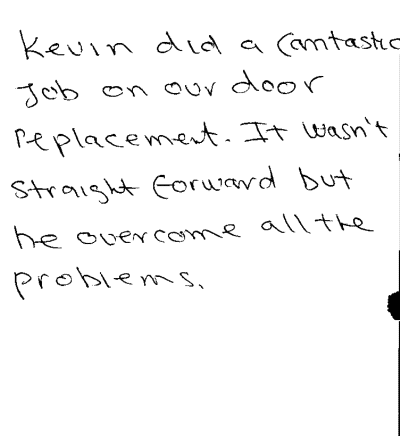 Kevin did a fantastic
Job on our door
replacement. It wasn't
straight forward but
he overcome all the
problems.